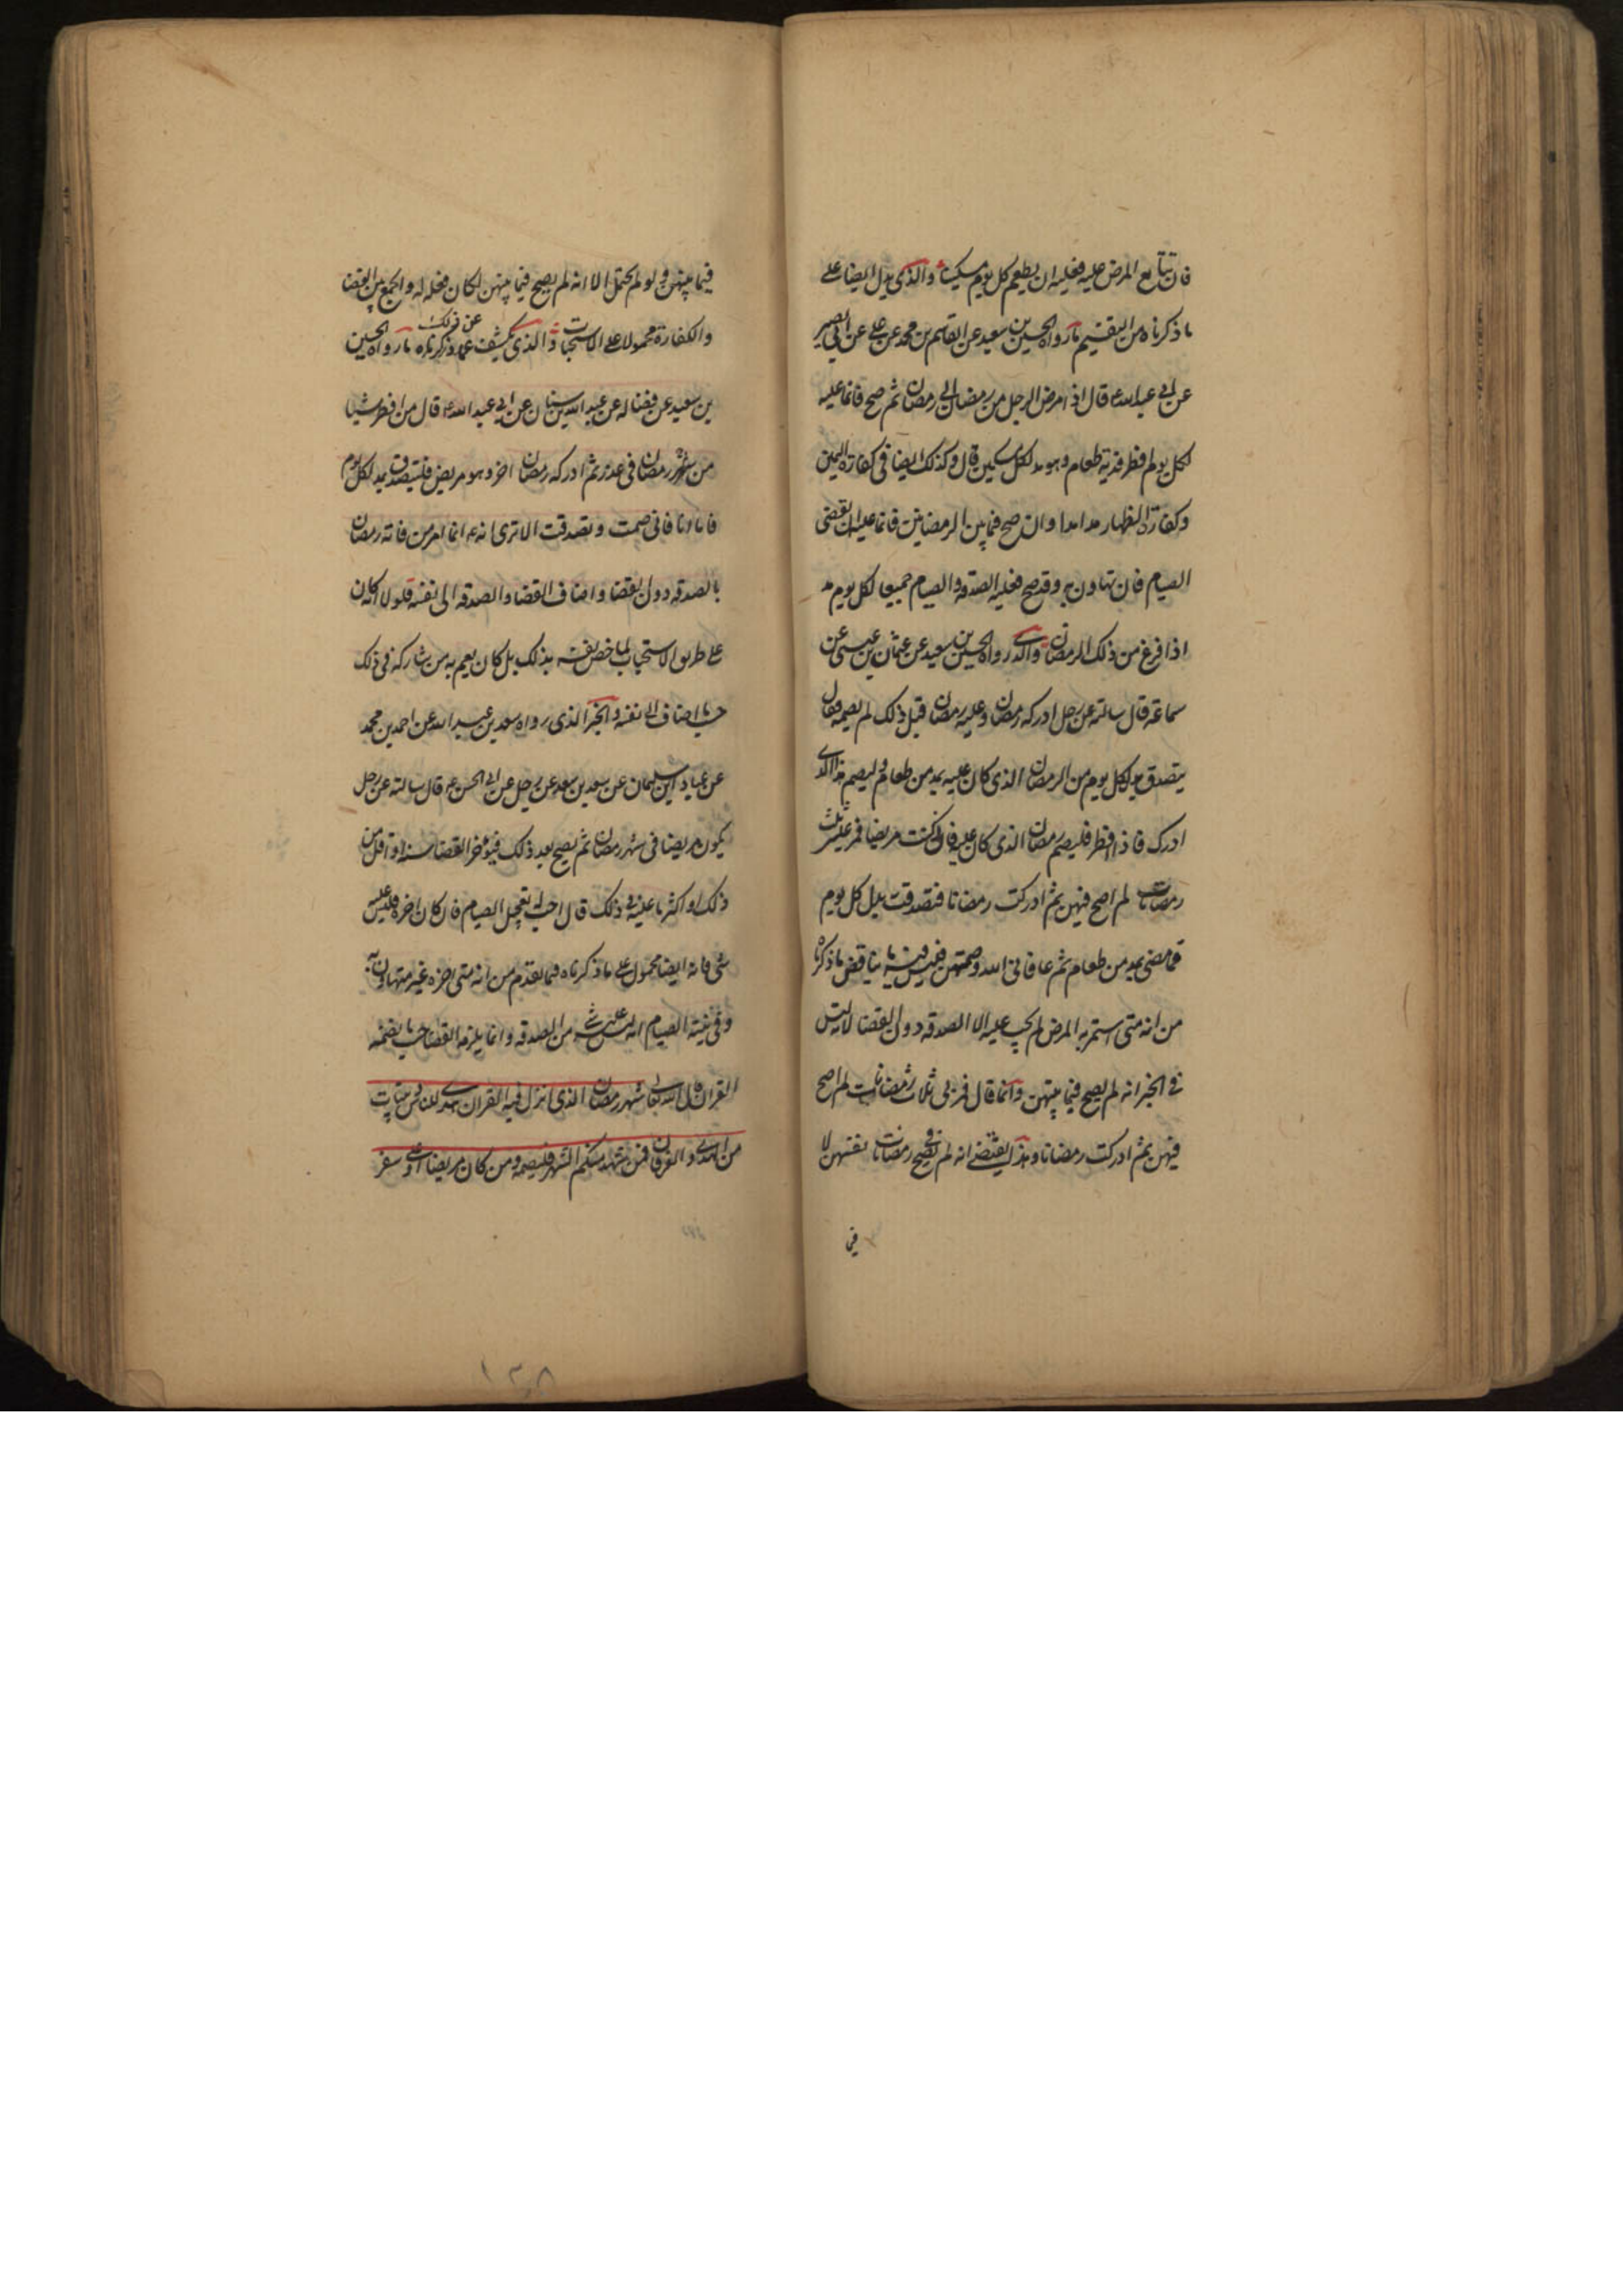 فان تتابع المرض عليه فعليه ان يطعم كل يوم مسكينا والذي يدل ايضا على
ما ذكرناه من التقسيم ما رواه الحسين بن سعيد عن القاسم بن محمد عن علي عن ابي بصير
عن ابي عبد الله ع قال اذا مرض الرجل من رمضان الى رمضان ثم صح فانما عليه
لكل يوم افطر فدية طعام وهو مد لكل مسكين قال وكذلك ايضا في كفارة اليمين
وكفارة الظهار مدا مدا وان صح فيما بين الرمضانين فانما عليه ان يقضى
الصيام فان تهاون به وقد صح فعليه الصدقه والصيام جميعا لكل يوم مد
اذا فرغ من ذلك الرمضان والذي رواه الحسين بن سعيد عن عثمان بن عيسى عن
سماعة قال سالته عن رجل ادركه رمضان وعليه رمضان قبل ذلك لم يصمه فقال
يتصدق بدل كل يوم من الرمضان الذي كان عليه بمد من طعام وليصم هذا الذي
ادرك فاذا افطر فليصم رمضان الذي كان عليه فاني كنت مريضا فمر علي ثلث
رمضانات لم اصح فيهن ثم ادركت رمضانا فتصدقت بدل كل يوم
مما مضى بمد من طعام ثم عافاني الله وصمتهن فليس فيه ما يناقض ما ذكرنا
من انه متى استمر به المرض لم يجب عليه الا الصدقه دون القضا لانه ليس
في الخبر انه لم يصح فيما بينهن وانما قال فمر بي ثلاث رمضانات لم اصح
فيهن ثم ادركت رمضانا وهذا يقتضي انه لم يصح في رمضانات نفسهن لا
في
فيما بينهن ولو لم يحتمل الا انه لم يصح فيما بينهن لكان فعله له والجمع بين القضا
والكفارة محمولا على الاستحباب والذي يكشف عما ذكرناه ما رواه الحسين
بن سعيد عن فضاله عن عبد الله بن سنان عن ابي عبد الله ع قال من افطر شيئا
من شهر رمضان في عذر ثم ادركه رمضان اخر وهو مريض فليتصدق بمد لكل يوم
فاما انا فاني صمت وتصدقت الا ترى انه ع انما امر من فاته رمضان
بالصدقه دون القضا واضاف القضا والصدقه الى نفسه فلولا انه كان
على طريق الاستحباب لما خص نفسه بذلك بل كان يعم به من شاركه في ذلك
حسب ما اضاف الى نفسه والخبر الذي رواه سعد بن عبد الله عن احمد بن محمد
عن عباد بن سليمان عن سعد بن سعد عن رجل عن ابي الحسن ع قال سالته عن رجل
يكون مريضا في شهر رمضان ثم يصح بعد ذلك فيؤخر القضا سنة او اقل من
ذلك او اكثر ما عليه في ذلك قال احب له تعجيل الصيام فان كان اخره فليس عليه
شي فانه ايضا محمول على ما ذكرناه فيما تقدم من انه متى اخره غير متهاون به
وفي نيته الصيام انه ليس عليه شي من الصدقه وانما يلزمه القضا حسب ما تضمنه
القران قال الله تعالى شهر رمضان الذي انزل فيه القران هدى للناس وبينات
من الهدى والفرقان فمن شهد منكم الشهر فليصمه ومن كان مريضا او على سفر